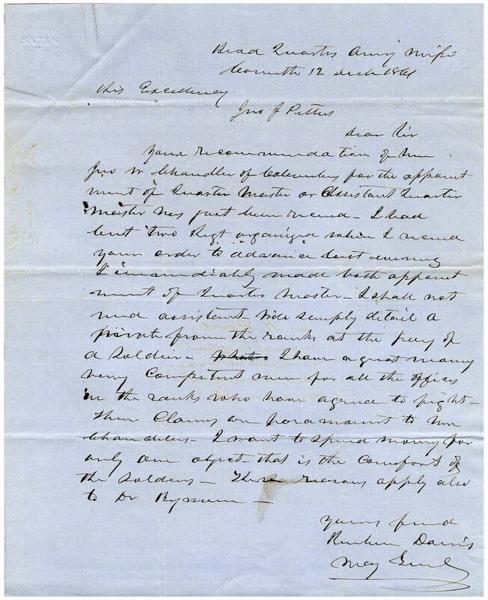 Head Quarters Army Missi
Corinth 12 Decbr 1861
His Excellency
Jno J Pettus
Dear Sir
Your recommendation of Mr
Jno W Chandler of Columbus for the appoint
ment of Quarter Master or Assistant Quarter
Master has just been recevd - I had
but two Regt organized when I recevd
your order to advance last evening
I immediately made both appoint
ment of Quarter Master - I shall not
need assistant Will simply detail a
private from the ranks at the pay of
a soldier - I have a great many
very competent men for all the offices
in the ranks who have agreed to fight -
their claims are paramount to Mr
Chandlers - I want to spend money for
only one object that is the comfort of
the soldiers - These reasons apply also
to Dr Bynum -
Yours friend
Reuben Davis
Maj Genl